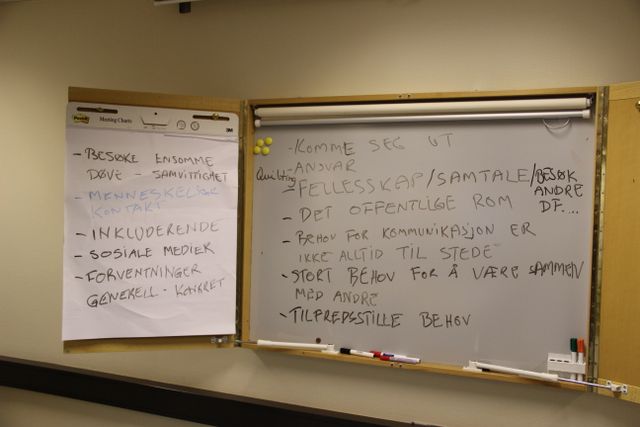 Post-it
Meeting Charts
3M
- BESØKE ENSOMME
DØVE - SAMVITTIGHET
- MENNESKELIGE
KONTAKT
- INKLUDERENDE
- SOSIALE MEDIER
- FORVENTNINGER
GENERELL - KONKRET
- KOMME SEG UT
- ANSVAR
Quilting
- FELLESSKAP/SAMTALE/BESØK
ANDRE
DF....
- DET OFFENTLIGE ROM
- BEHOV FOR KOMMUNIKASJON ER
IKKE ALLTID TIL STEDE
- STORT BEHOV FOR Å VÆRE SAMMEN
MED ANDRE
- TILFREDSSTILLE BEHOV